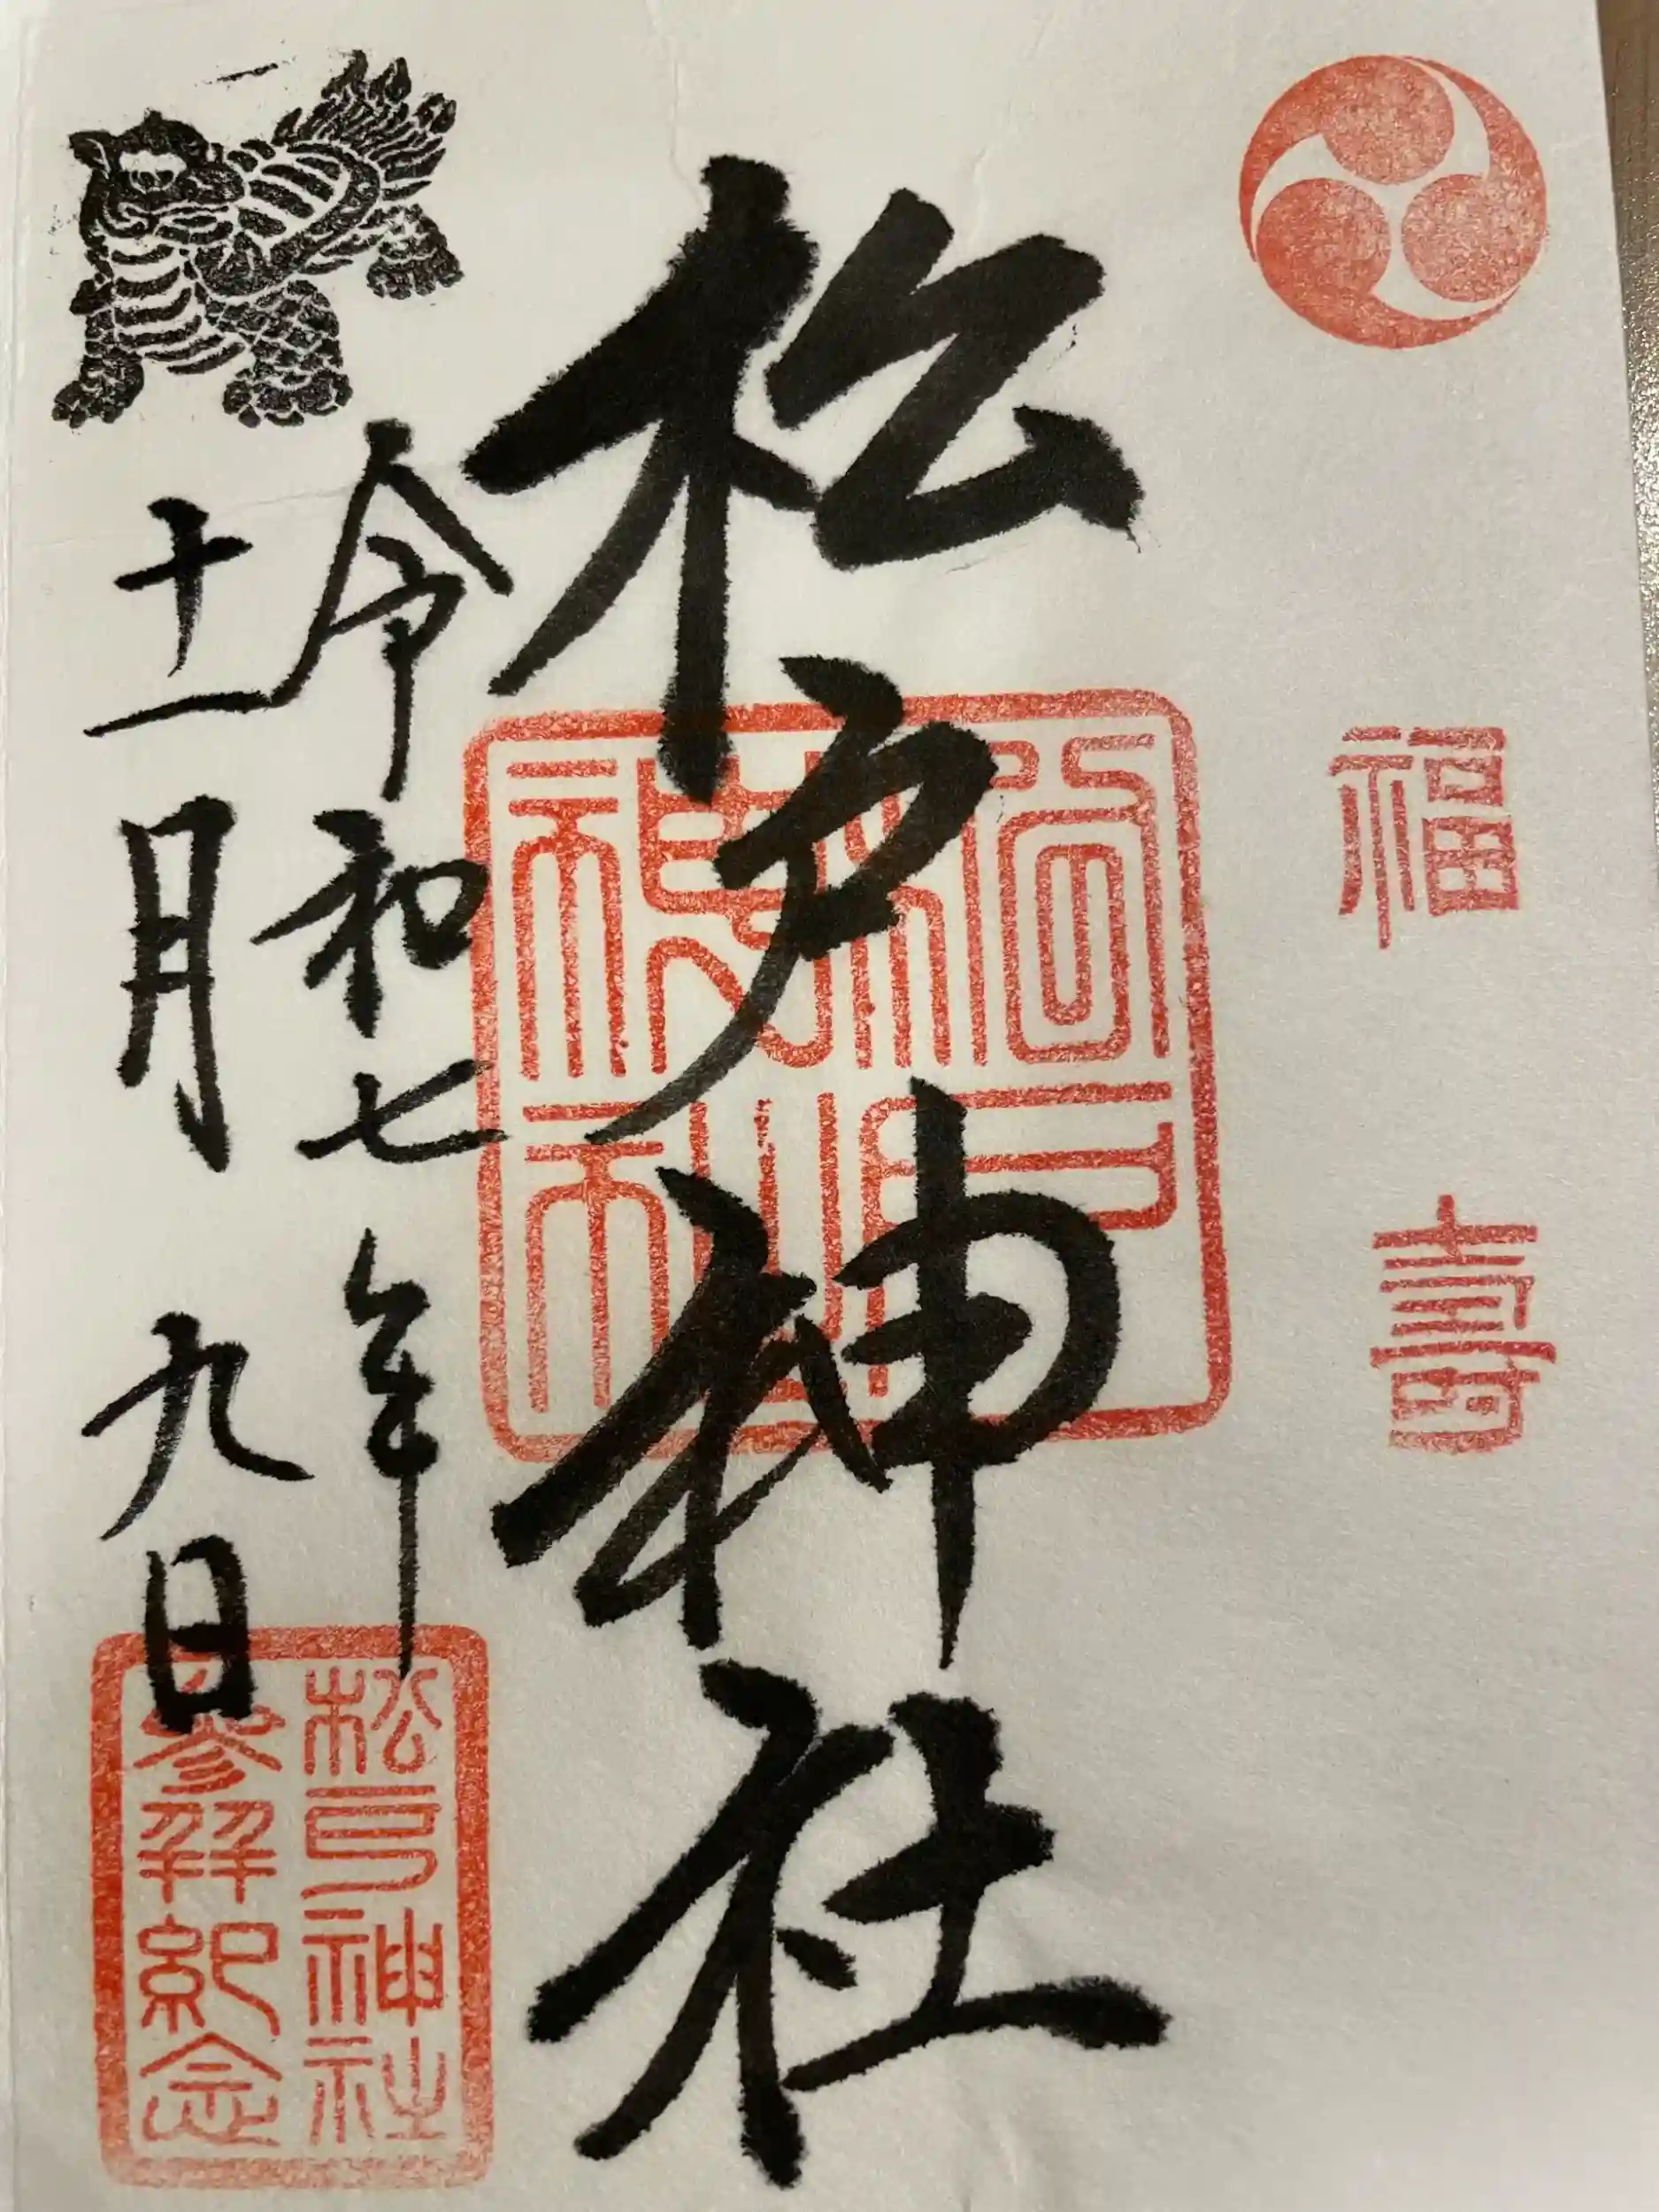 福
壽
松戸神社
松戸神社
令和七年
十一月九日
松戸神社
参拝紀念